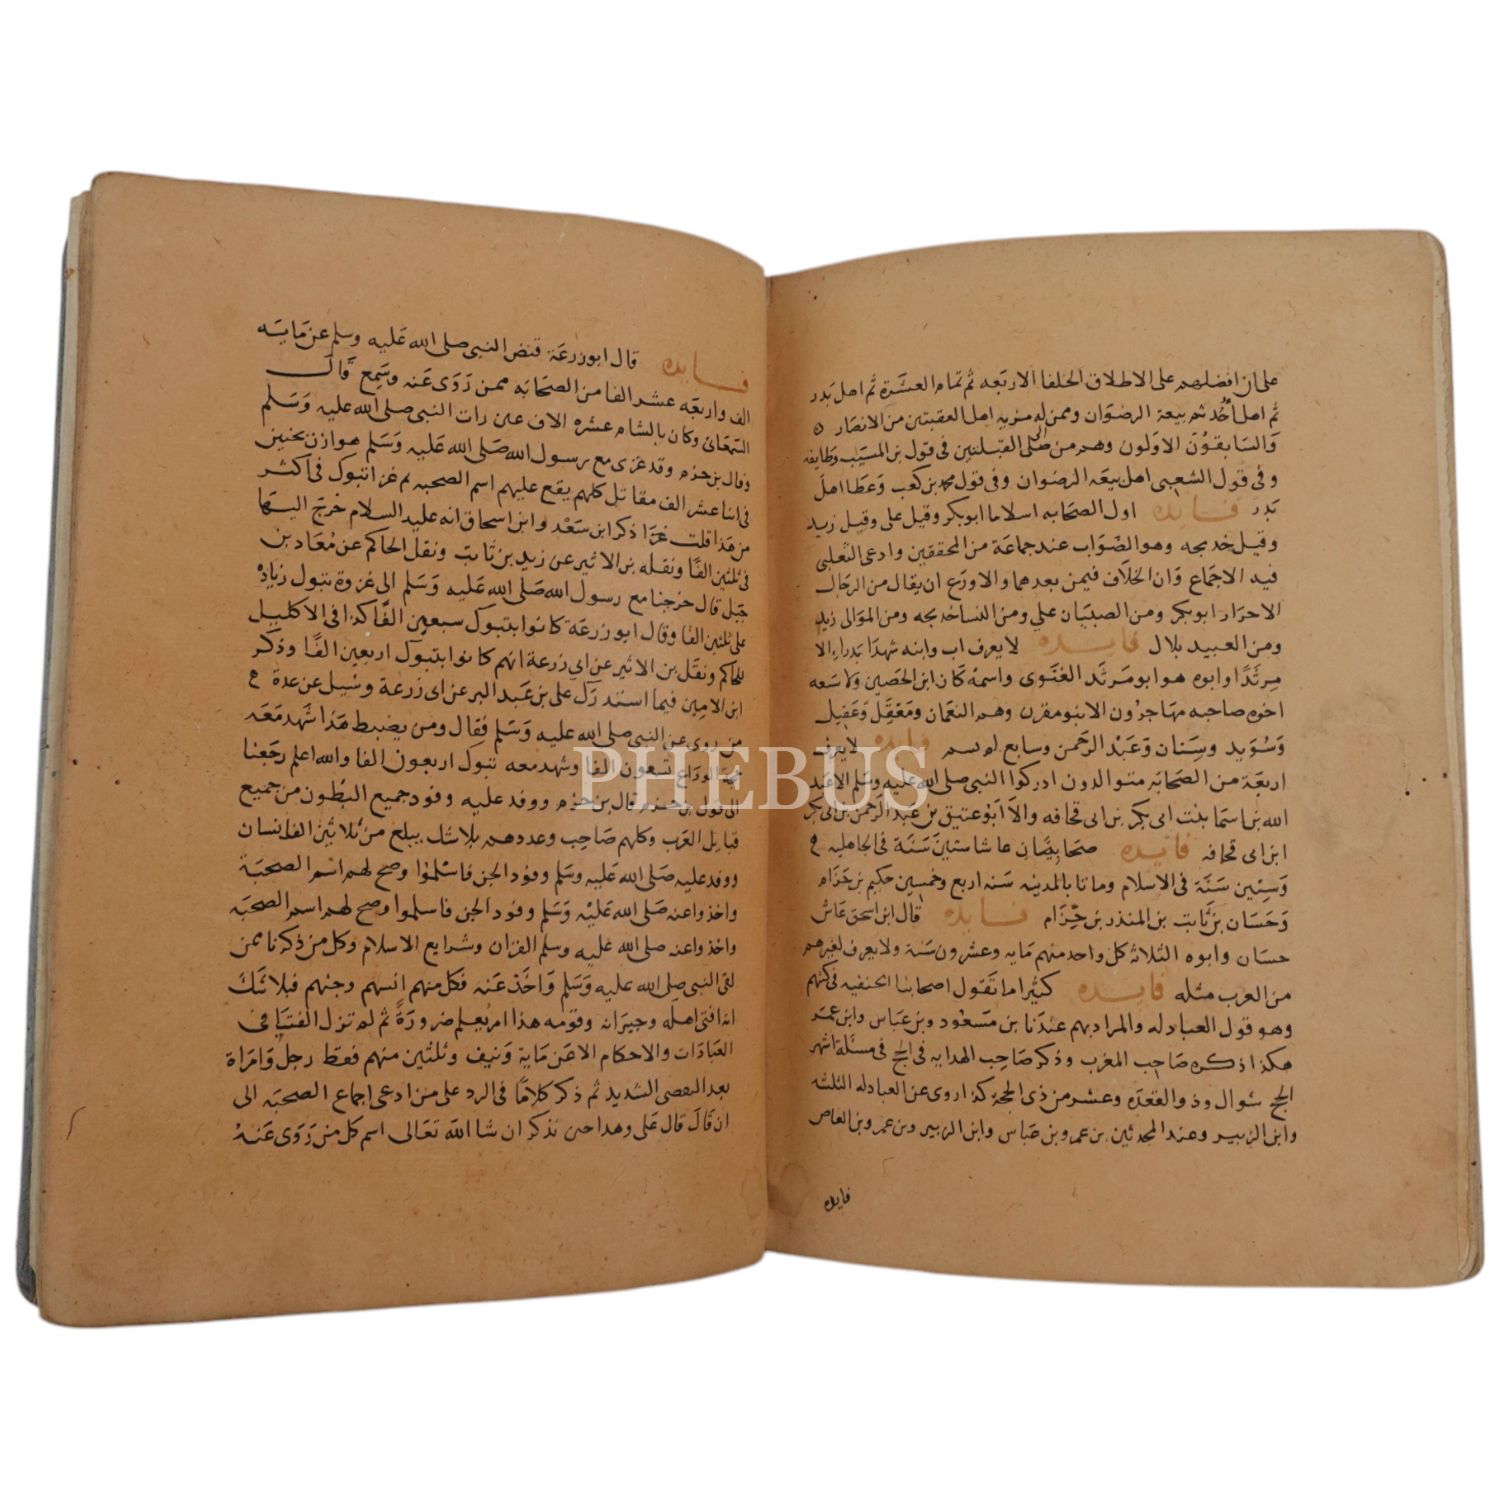 على ان افضلهم على الاطلاق الخلفا الاربعه ثم تمام العشرة ثم اهل بدر
ثم اهل أحد ثم بيعة الرضوان وممن له مزيه اهل العقبتين من الانصار
والسابقون الاولون وهم من صلى الى القبلتين في قول بن المسيب وطايفه
وفي قول الشعبي اهل بيعة الرضوان وفي قول محمد بن كعب وعطا اهل
بدر فايده اول الصحابه اسلاما ابوبكر وقيل على وقيل زيد
وقيل خديجه وهو الصواب عند جماعة من المحققين وادعى الثعلبي
فيه الاجماع وان الخلاف فيمن بعدهما والاورع ان يقال من الرجال
الاحرار ابوبكر ومن الصبيان علي ومن النسا خديجه ومن الموالى زيد
ومن العبيد بلال فايده لا يعرف اب وابنه شهدا بدرا الا
مرثدا وابوه هو ابو مرثد الغنوى واسمه كناز ابن الحصين ولا سبعه
اخوه صاحبه مهاجرون الا بنو مقرن وهم النعمان ومعقل وعقيل
وسويد وسنان وعبد الرحمن وسابع لم يسم فايده لا يعرف
اربعة من الصحابه متوالدون ادركوا النبي صلى الله عليه وسلم الا عبد
الله بن اسما بنت ابى بكر بن ابى قحافه والا ابو عتيق بن عبد الرحمن بن ابى بكر
ابن ابى قحافه فايده صحابيان عاشا ستين سنة في الجاهليه
وستين سنة في الاسلام وماتا بالمدينه سنه اربع وخمسين حكيم بن حزام
وحسان بن ثابت بن المنذر بن حزام فايده قال ابن اسحق عاش
حسان وابوه الثلاثه كل واحد منهم مايه وعشرون سنة ولا يعرف لغيرهم
من العرب مثله فايده كثيرا ما تقول اصحابنا الحنفيه في كتبهم
وهو قول العبادله والمراد بهم عندنا بن مسعود وبن عباس وابن عمر
هكذا ذكره صاحب المغرب وذكر صاحب الهدايه في الحج في مسئلة اشهر
الحج شوال وذو القعده وعشر من ذى الحجة كذا روى عن العبادله الثلثه
وابن الزبير وعند المحدثين بن عمر وبن عباس وابن الزبير وبن عمرو بن العاص
فايده
فايده قال ابو زرعة قبض النبي صلى الله عليه وسلم عن مايه
الف واربعه عشر الفا من الصحابه ممن روى عنه وسمع قال
وكان بالشام عشره الاف عين رات النبي صلى الله عليه وسلم
وقال بن حزم وقد غزى مع رسول الله صلى الله عليه وسلم هوازن بحنين
فى اثنا عشر الف مقاتل كلهم يقع عليهم اسم الصحبه ثم غزا تبوك في اكثر
من هذا قلت غزا ذكر ابن سعد وابن اسحاق انه عليه السلام خرج اليها
فى ثلثين الفا ونقله بن الاثير عن زيد بن ثابت ونقل الحاكم عن معاد بن
جبل قال خرجنا مع رسول الله صلى الله عليه وسلم الى غزوة تبوك زياده
على ثلثين الفا وقال ابو زرعة كانوا بتبوك سبعين الفا كذا في الاكليل
للحاكم ونقل بن الاثير عن ابي زرعة انهم كانوا بتبوك اربعين الفا وذكر
ابن الامين فيما استدرك على بن عبد البر عن ابى زرعة وسيل عن عدة
من روى عن النبي صلى الله عليه وسلم فقال ومن يضبط هذا شهد معه
حجة الوداع تسعون الفا وشهد معه تبوك اربعون الفا والله اعلم رجعنا
الى قول بن حزم قال بن حزم ووفد عليه وفود جميع البطون من جميع
قبايل العرب وكلهم صاحب وعددهم بلا شك يبلغ من ثلاثين الف انسان
ووفد عليه صلى الله عليه وسلم وفود الجن فاسلموا وصح لهم اسم الصحبة
واخذوا عنه صلى الله عليه وسلم وفود الجن فاسلموا وصح لهم اسم الصحبه
واخذوا عنه صلى الله عليه وسلم القران وشرايع الاسلام وكل من ذكرنا ممن
لقى النبي صلى الله عليه وسلم واخذ عنه فكل منهم انسهم وجنهم فبلا شك
انه افتى اهله وجيرانه وقومه هذا امر يعلم ضرورة ثم لم تزل الفتيا في
العبادات والاحكام الا عن ماية ونيف وثلثين منهم فقط رجل وامراة
بعد التقصى الشديد ثم ذكر كلاما في الرد على من ادعى اجماع الصحبه الى
ان قال قال على وهذا حين نذكر ان شا الله تعالى اسم كل من روى عنه
PHEBUS